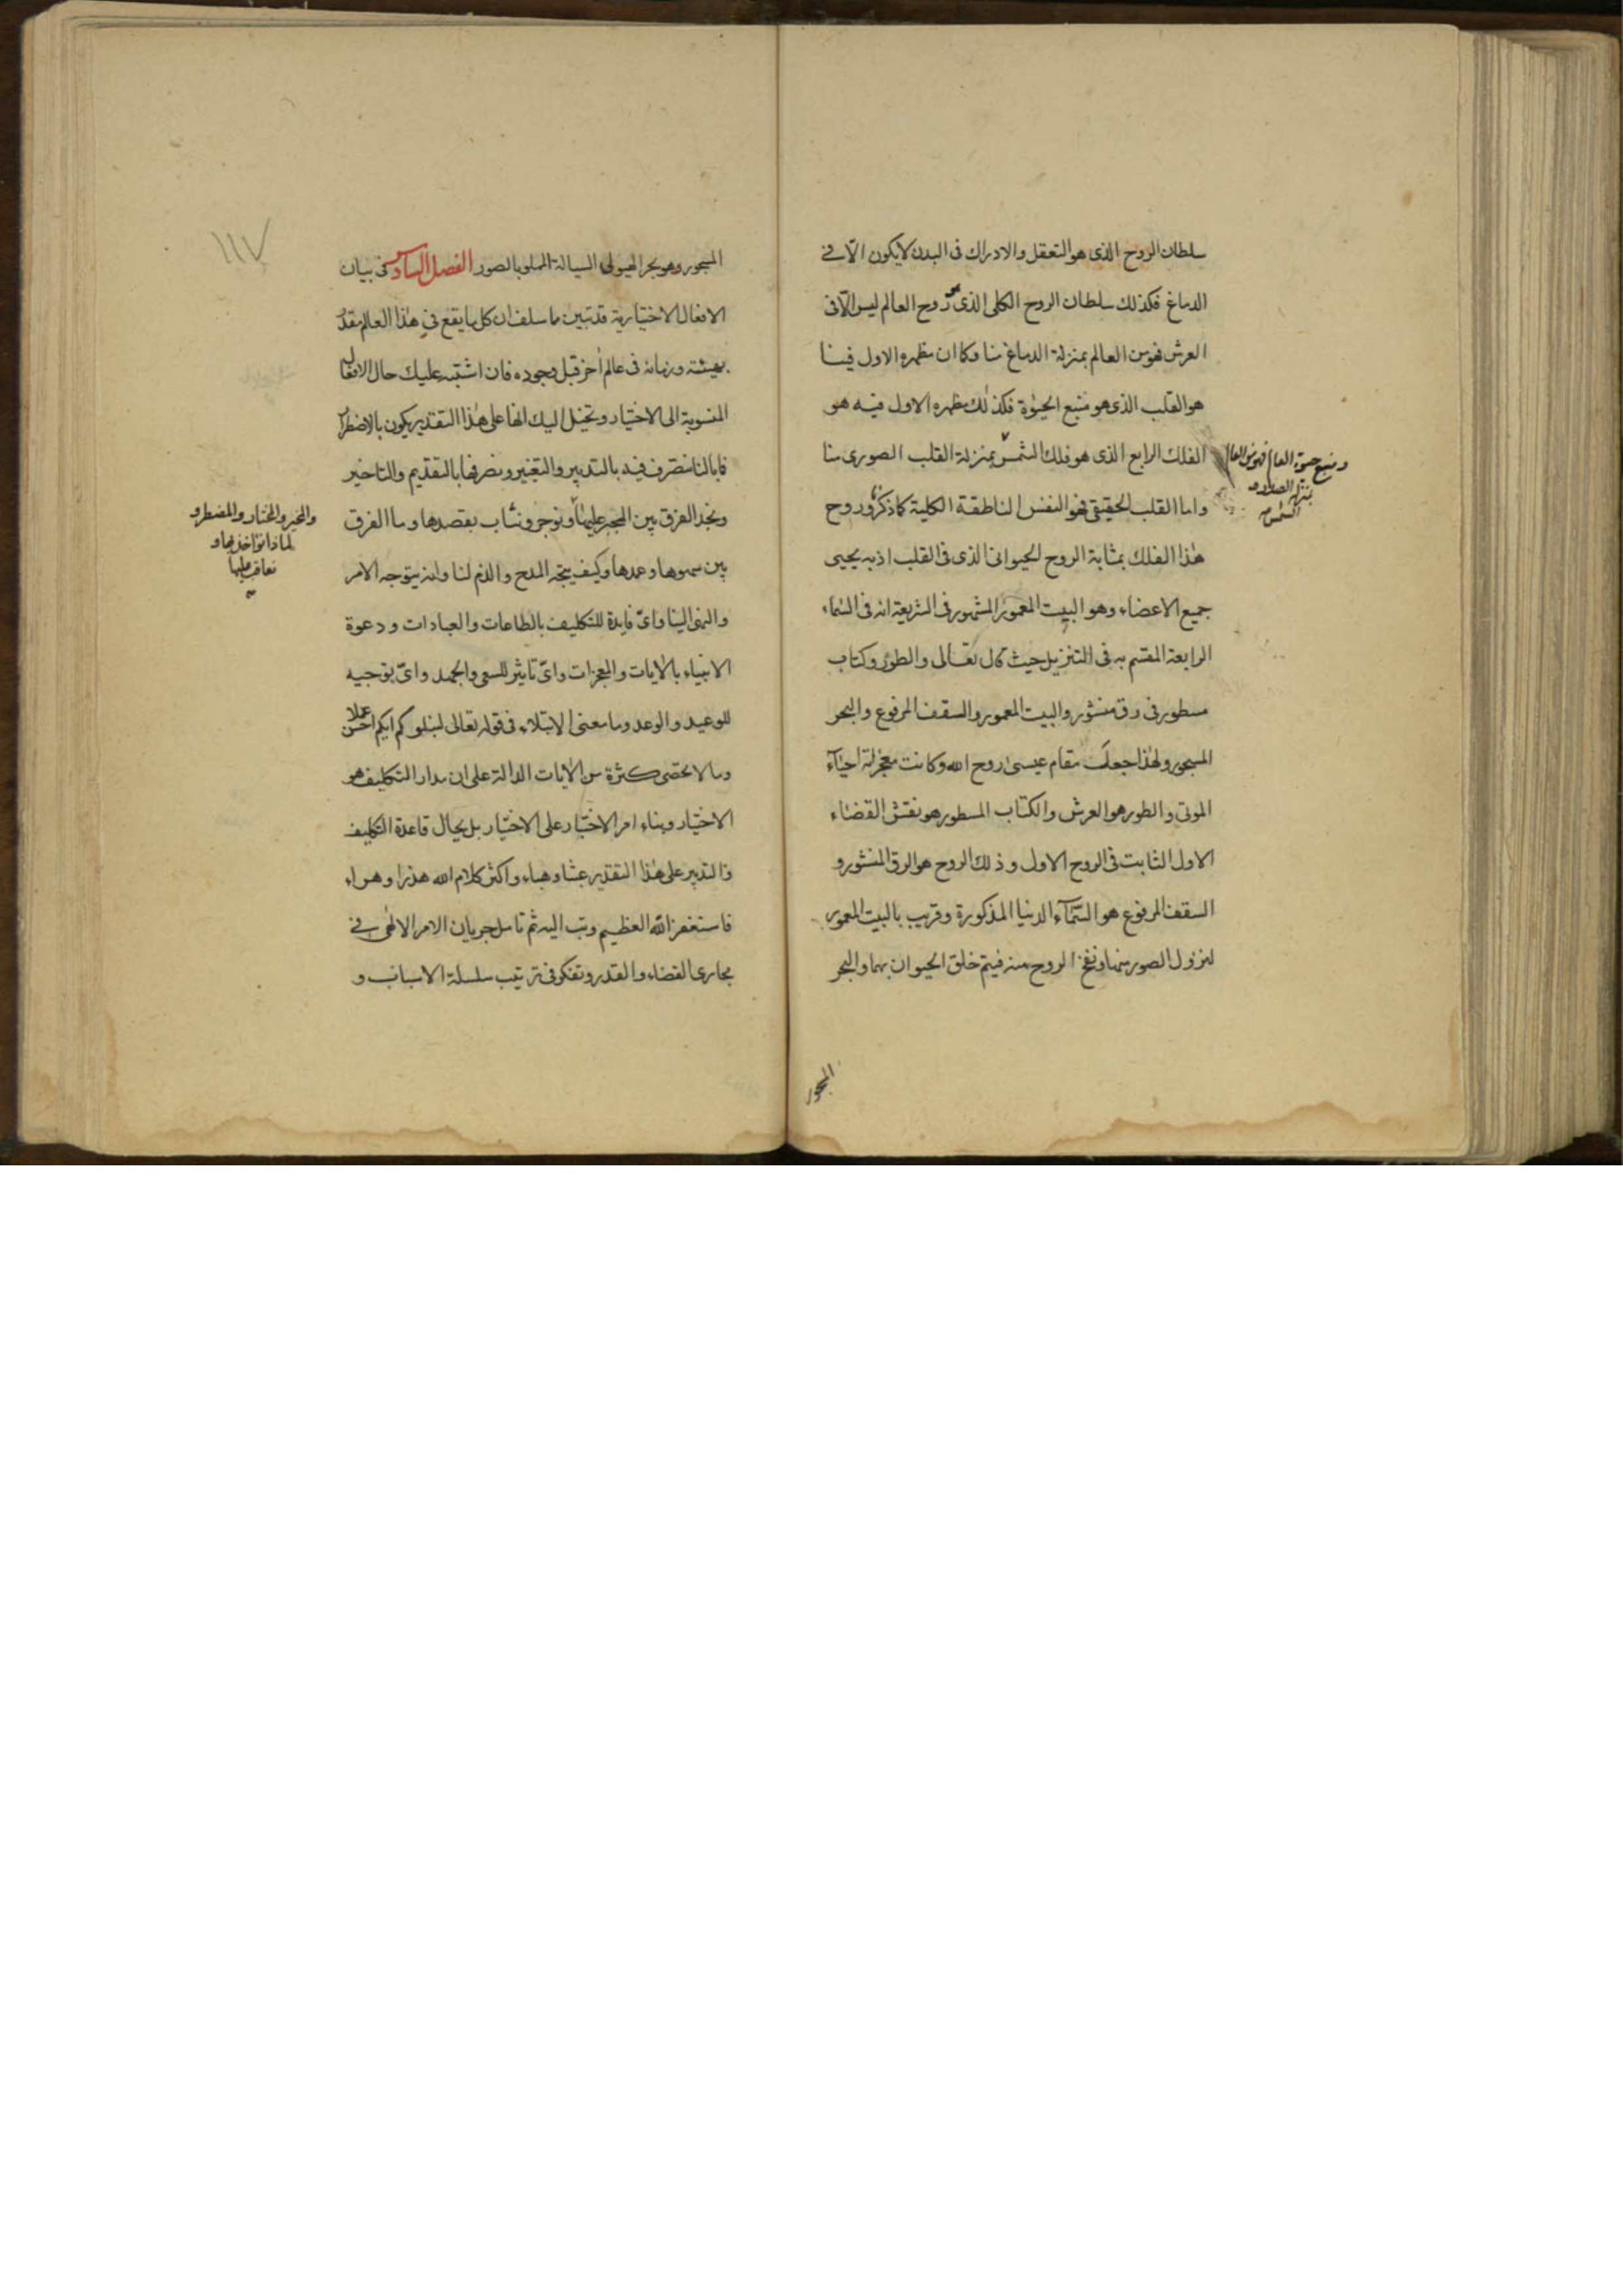 سلطان الروح الذى هو التعقل والادراك فى البدن لا يكون الّا فى
الدماغ فكذلك سلطان الروح الكلى الذى هو روح العالم ليس الّا فى
العرش فهو من العالم بمنزلة الدماغ منا وكما ان مظهره الاول فينا
هو القلب الذى هو منبع الحيوة فكذلك مظهره الاول فيه هو
الفلك الرابع الذى هو فلك الشمس بمنزلة القلب الصورى منا
ومنبع حيوة العالم فهو من العالم
بمنزلة الصدر و
الشمس
واما القلب الحقيقى فهو النفس الناطقة الكلية كما ذكر وروح
هذا الفلك بمثابة الروح الحيوانى الذى فى القلب اذ به يحيى
جميع الاعضاء وهو البيت المعمور المشهور فى الشريعة انه فى السماء
الرابعة المقسم به فى التنزيل حيث قال تعالى والطور وكتاب
مسطور فى رق منشور والبيت المعمور والسقف المرفوع والبحر
المسجور ولهذا جعلت مقام عيسى روح الله وكانت معجزته احياء
الموتى والطور هو العرش والكتاب المسطور هو نقش القضاء
الاول الثابت فى الروح الاول وذلك الروح هو الرق المنشور و
السقف المرفوع هو السمآء الدنيا المذكورة وقريب بالبيت المعمور
لنزول الصور منها ونفخ الروح منه فيتم خلق الحيوان بهما والبحر
المسجور
١١٧
المسجور وهو بحر الهيولى السيالة المملو بالصور الفصل السادس فى بيان
الافعال الاختيارية قد تبين ما سلف ان كل ما يقع فى هذا العالم مقدر
بهيئته وزمانه فى عالم اخر قبل وجوده فان اشتبه عليك حال الافعال
المنسوبة الى الاختيار وتخيل اليك انها على هذا التقدير يكون بالاضطرار
فما بالنا نتصرف فيه بالتدبير والتغيير ونصرفها بالتقديم والتاخير
ونجد الفرق بين المجبر عليها ونوجر ونثاب بقصدها وما الفرق
والمخير والمختار والمضطر و
لماذا نؤاخذ بها و
نعاقب عليها
بين سهوها وعمدها وكيف يتجه المدح والذم لنا وانه يتوجه الامر
والنهى الينا واىّ فايدة للتكليف بالطاعات والعبادات ودعوة
الانبياء بالايات والمعجزات واىّ تاثير للسعى والجهد واىّ توجيه
للوعيد والوعد وما معنى الابتلاء فى قوله تعالى ليبلوكم ايكم احسن عملا
وما لا تحصى كثرة من الايات الدالة على ان مدار التكليف هو
الاختيار وبناء امر الاختبار على الاختيار بل يحال قاعدة التكليف
والتدبير على هذا التقدير عبثا وهباء واكثر كلام الله هذرا وهراء
فاستغفر الله العظيم وتب اليه ثم تامل جريان الامر الالهى فى
مجارى القضاء والقدر وتفكر فى ترتيب سلسلة الاسباب و